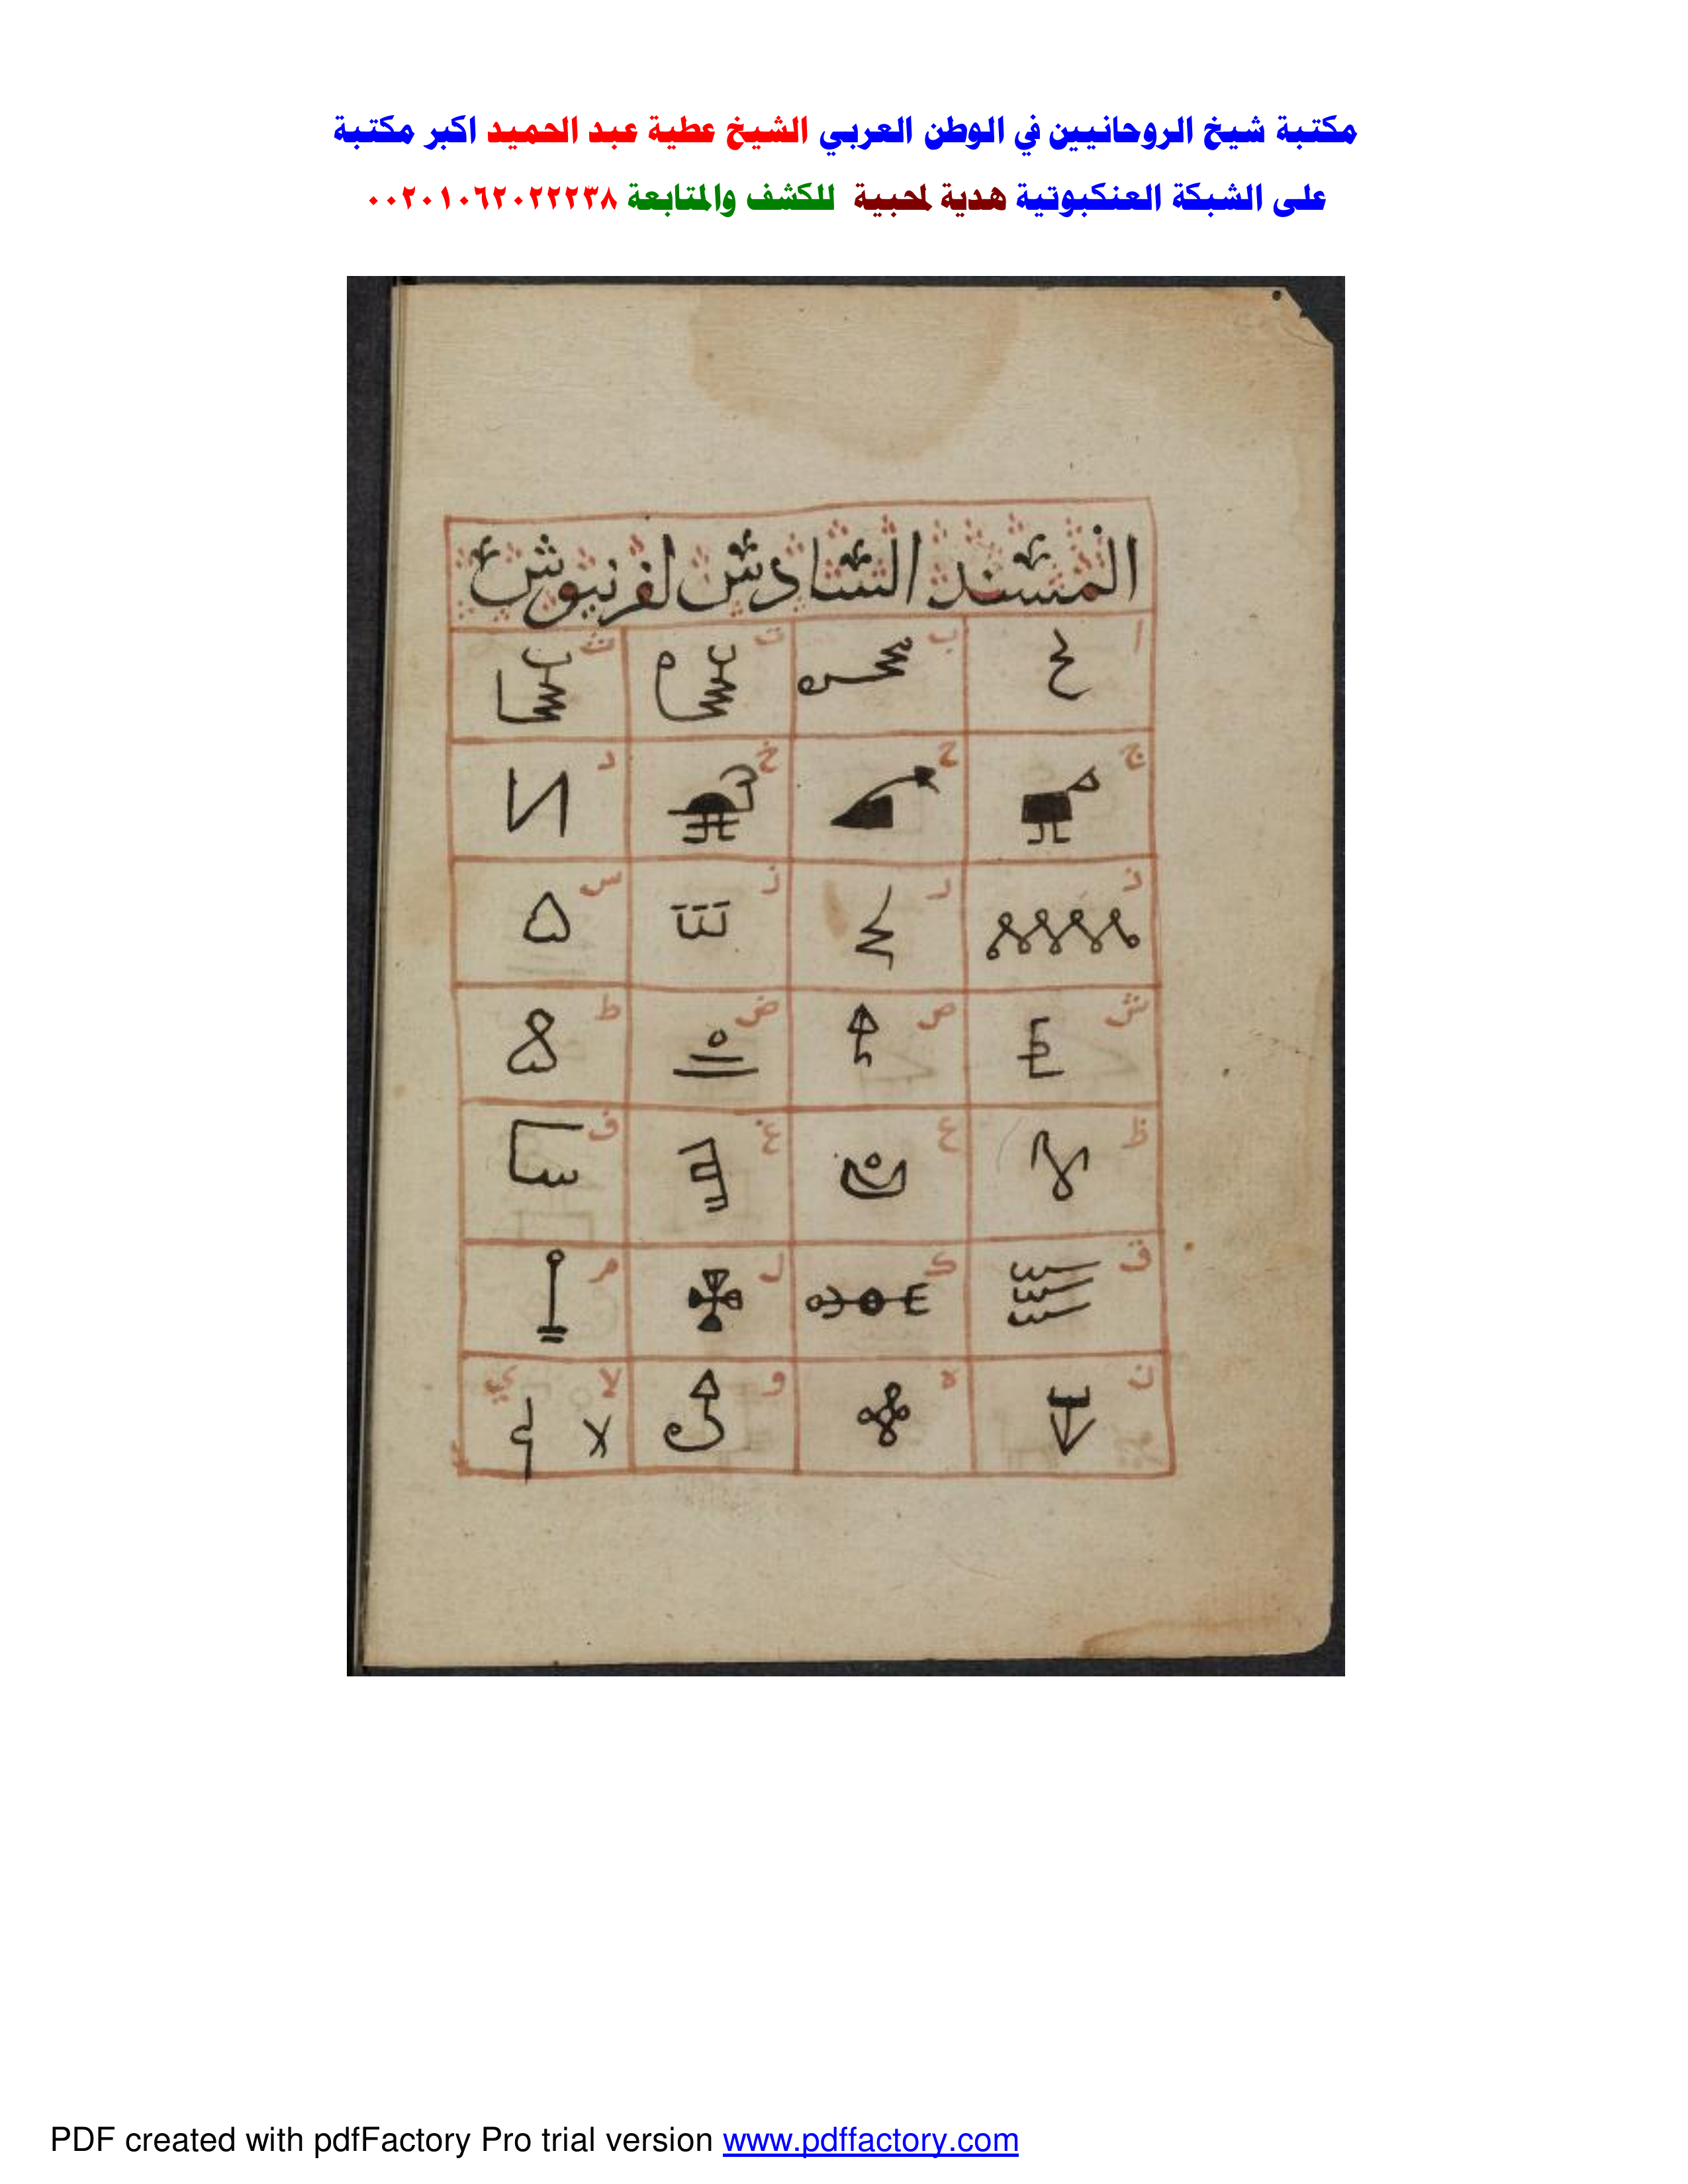 مكتبة شيخ الروحانيين في الوطن العربي الشيخ عطية عبد الحميد اكبر مكتبة
على الشبكة العنكبوتية هدية لمحبية للكشف والمتابعة ٠٠٢٠١٠٦٢٠٢٢٢٣٨
المسند السادس لفرنيوش
ا ب ت ث
ج ح خ د
ذ ر ز س
ش ص ض ط
ظ ع غ ف
ق ك ل م
ن ه و لا ي
PDF created with pdfFactory Pro trial version www.pdffactory.com